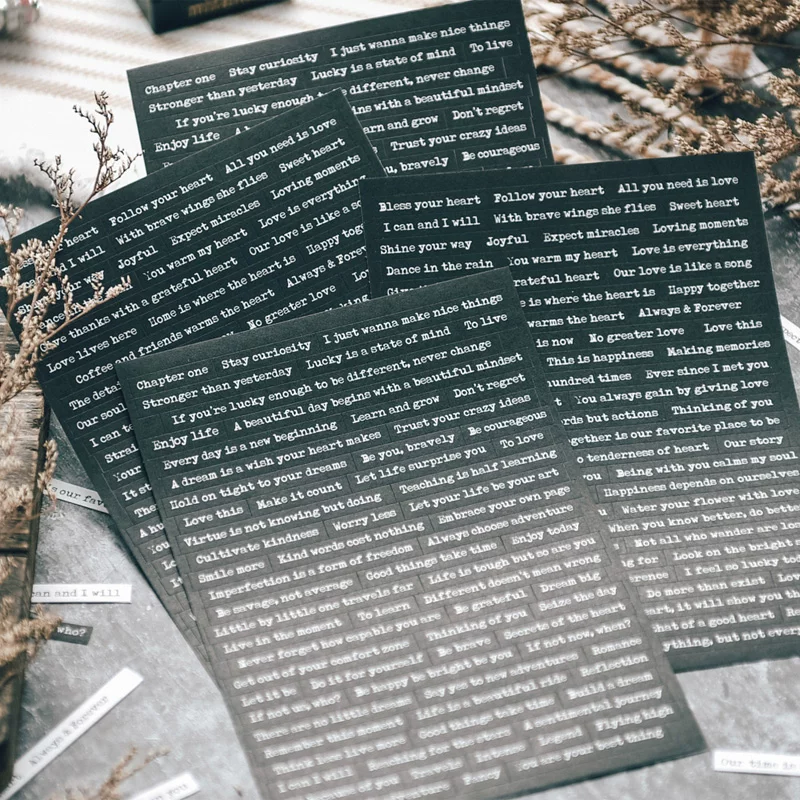 Chapter one Stay curiosity I just wanna make nice things
Stronger than yesterday Lucky is a state of mind To live
If you're lucky enough to be different, never change
Enjoy life ins with a beautiful mindset
arn and grow Don't regret
Trust your crazy ideas
u, bravely Be courageous
heart Follow your heart All you need is love
and I will With brave wings she flies Sweet heart
your way Joyful Expect miracles Loving moments
You warm my heart Love is everything
Give thanks with a grateful heart Our love is like a so
Love lives here Home is where the heart is Happy toge
Coffee and friends warms the heart Always & Forev
The detai No greater love Lo
Our soul Making
I can t
Strai
Your
It st
The
A hu
You
Bless your heart Follow your heart All you need is love
I can and I will With brave wings she flies Sweet heart
Shine your way Joyful Expect miracles Loving moments
Dance in the rain You warm my heart Love is everything
rateful heart Our love is like a song
e is where the heart is Happy together
warms the heart Always & Forever
is now No greater love Love this
This is happiness Making memories
hundred times Ever since I met you
You always gain by giving love
rds but actions Thinking of you
gether is our favorite place to be
o tenderness of heart Our story
you Being with you calms my soul
Happiness depends on ourselves
Water your flower with love
When you know better, do bette
Not all who wander are los
g for Look on the bright s
rence I feel so lucky tod
Do more than exist Lov
art, it will show you th
hat of a good heart
ything, but not every
Chapter one Stay curiosity I just wanna make nice things
Stronger than yesterday Lucky is a state of mind To live
If you're lucky enough to be different, never change
Enjoy life A beautiful day begins with a beautiful mindset
Every day is a new beginning Learn and grow Don't regret
A dream is a wish your heart makes Trust your crazy ideas
Hold on tight to your dreams Be you, bravely Be courageous
Love this Make it count Let life surprise you To love
Virtue is not knowing but doing Teaching is half learning
Cultivate kindness Worry less Let your life be your art
Smile more Kind words cost nothing Embrace your own page
Imperfection is a form of freedom Always choose adventure
Be savage, not average Good things take time Enjoy today
Little by little one travels far Life is tough but so are you
Live in the moment To learn Different doesn't mean wrong
Never forget how capable you are Be grateful Dream big
Get out of your comfort zone Thinking of you Seize the day
Let it be Do it for yourself Be brave Secrets of the heart
If not us, who? Be happy be bright be you If not now, when?
There are no little dreams Say yes to new adventures Romance
Remember this moment Life is a beautiful ride Reflection
Think less live more Good things take time Build a dream
I can I will Reaching for the stars A sentimental journey
of you Travels Intense Legend Flying high
Enjoy You are your best thing
s our favo
can and I will
who?
Always & Forever
you
Our time is